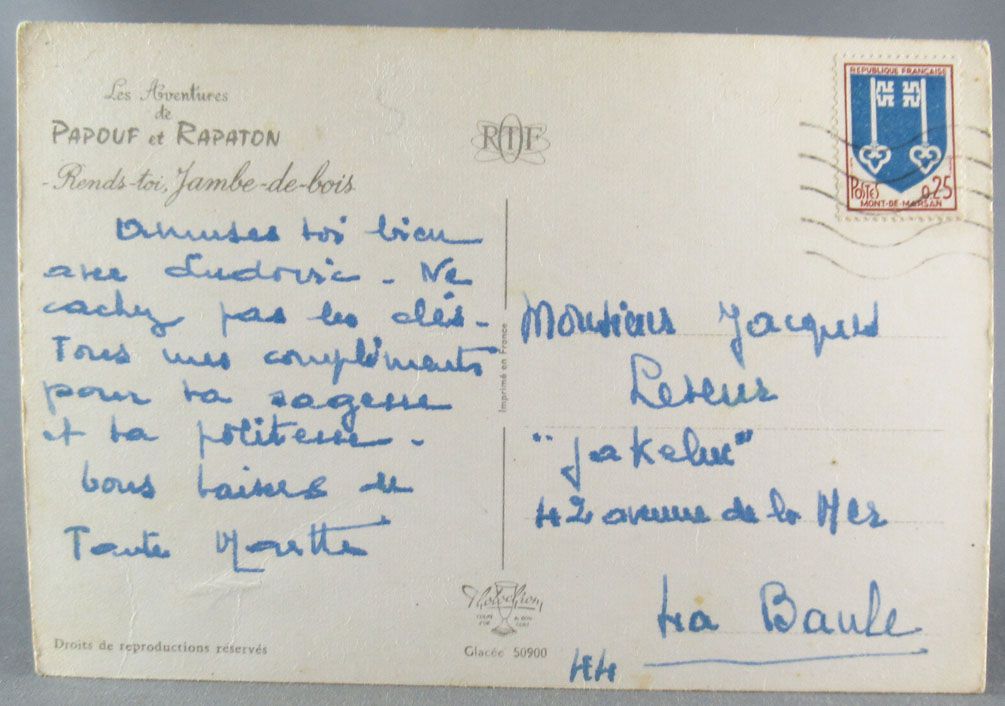 Les Aventures
de
PAPOUF et RAPATON
- Rends-toi, Jambe-de-bois
RTF
REPUBLIQUE FRANÇAISE
POSTES
0,25
MONT-DE-MARSAN
Amuses toi bien
avec Ludovic - Ne
cachez pas les clés -
Tous mes compliments
pour ta sagesse
et ta politesse -
bons baisers de
Tante
Imprimé en France
Monsieur Jacques
"Jakeluc"
42 avenue de la Mer
La Baule
44
Photochrom
Glacée 50900
Droits de reproductions réservés